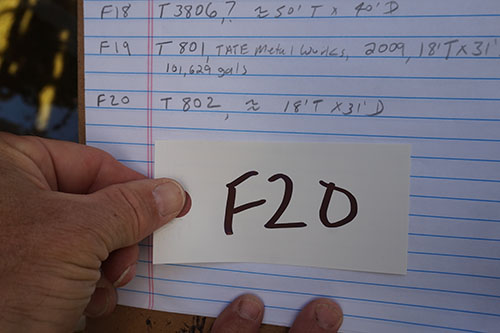 F18 T3806,? ≈ 50' T x 40' D
F19 T 801, TATE Metal Works, 2009, 18'T x 31'
101,629 gals
F20 T 802, ≈ 18'T x 31' D
F20